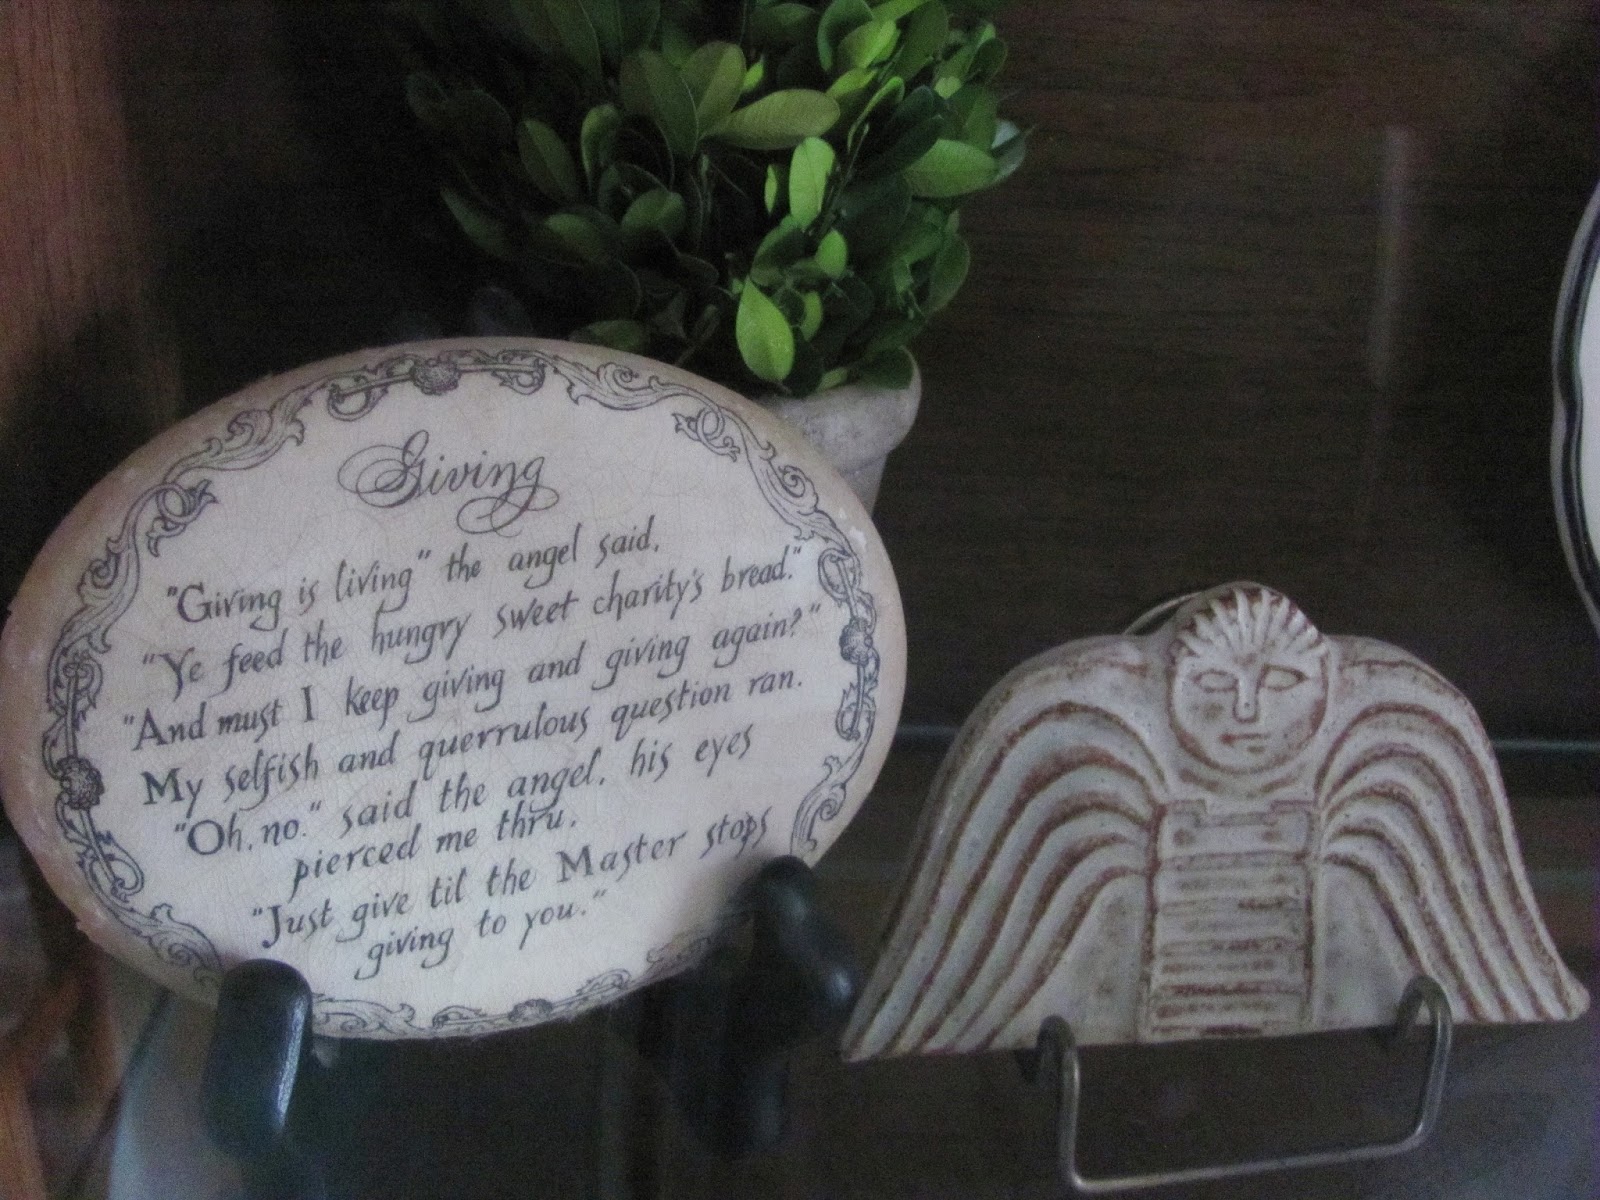 Giving
"Giving is living" the angel said,
"Ye feed the hungry sweet charity's bread."
"And must I keep giving and giving again?"
My selfish and querrulous question ran.
"Oh, no." said the angel, his eyes
pierced me thru,
"Just give til the Master stops
giving to you."